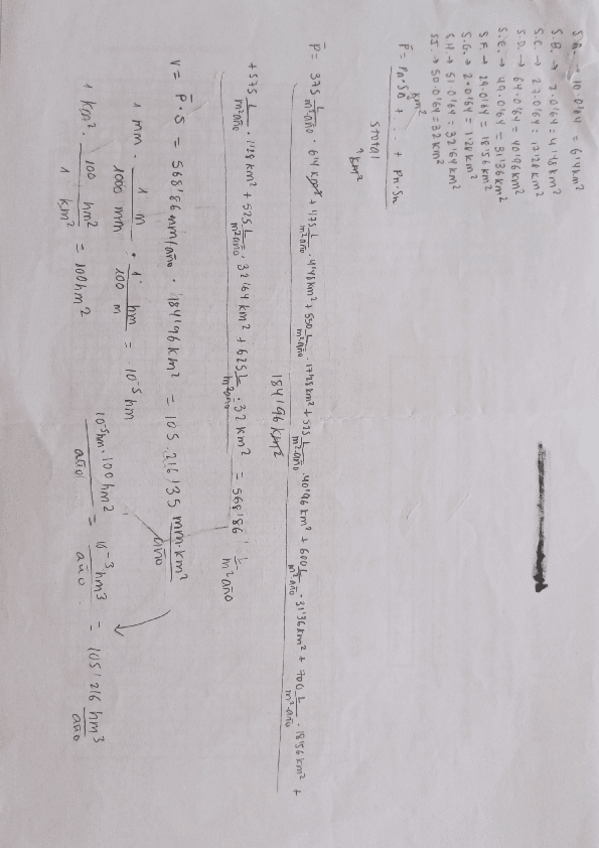 S.A. → 10.0'64 = 6'4 km²
S.B. → 7.0'64 = 4'48 km²
S.C. → 27.0'64 = 17'28 km²
S.D. → 64.0'64 = 40'96 km²
S.E. → 49.0'64 = 31'36 km²
S.F. → 29.0'64 = 18'56 km²
S.G. → 2.0'64 = 1'28 km²
S.H → 51.0'64 = 32'64 km²
SI. → 50.0'64 = 32 km²
km²
P̄ = Pn·Sn + ... + Pn·Sn
Stotal
km²
P̄ = 375 L/m²año · 6'4 km² + 475 L/m²año · 4'48 km² + 550 L/m²año · 17'28 km² + 525 L/m²año · 40'96 km² + 600 L/m²año · 31'36 km² + 700 L/m²año · 18'56 km² +
184'96 km²
+575 L/m²año · 1'28 km² + 525 L/m²año · 32'64 km² + 625 L/m²año · 32 km² = 568'86 L/m²año
V = P̄ · S = 568'86 mm/año · 184'96 km² = 105.216'35 mm·km²/año
1 mm · 1 m/1000 mm · 1 hm/100 m = 10⁻⁵ hm
1 km² · 100 hm²/1 km² = 100 hm²
10⁻⁵ hm · 100 hm²/año = 10⁻³ hm³/año = 105'216 hm³/año